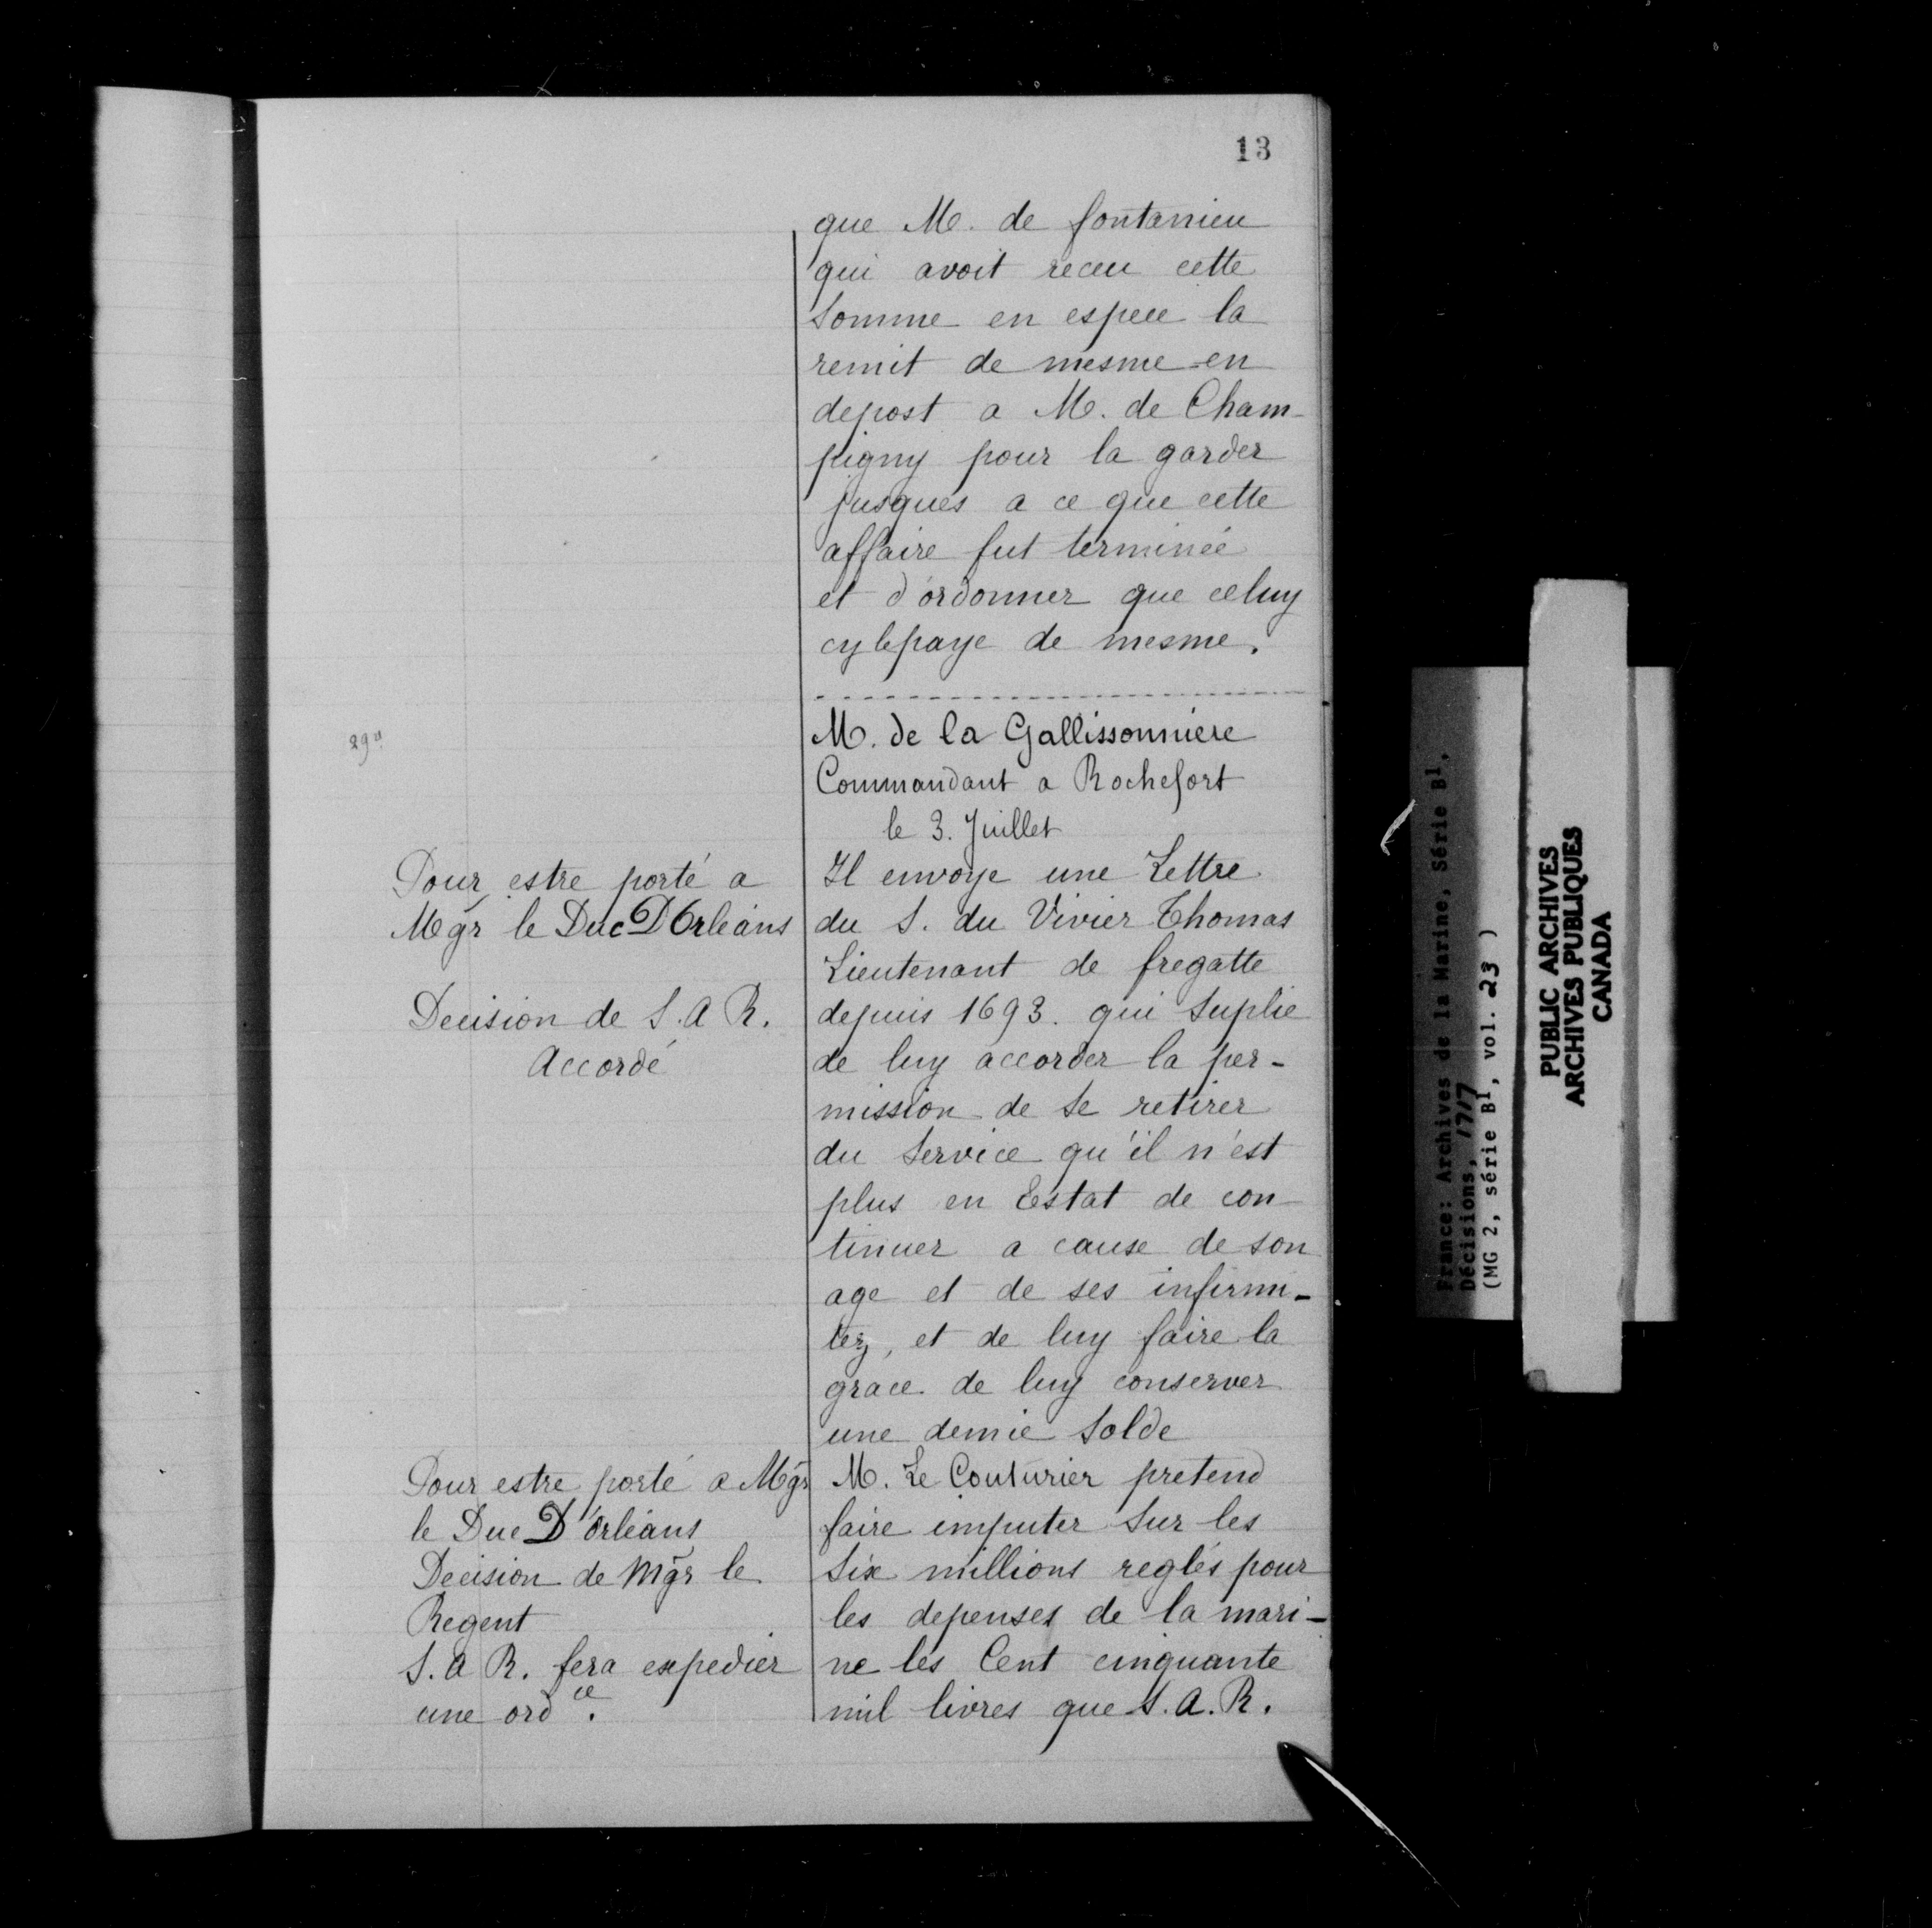 13
que M. de fontanieu
qui avoit receu cette
Somme en espece la
remit de mesme en
depost a M. de Cham-
pigny pour la garder
jusques a ce que cette
affaire fut terminée
et d'ordonner que celuy
cy lepaye de mesme.
M. de la Gallissonniere
Commandant a Rochefort
le 3. Juillet
Pour estre porté a
Mgr le Duc D'Orleans
Decision de S. A R.
Accordé
Il envoye une Lettre
du S. du Vivier Thomas
Lieutenant de fregatte
depuis 1693. qui Suplie
de luy accorder la per-
mission de Se retirer
du Service qu'il n'est
plus en Estat de con-
tinuer a cause de son
age et de ses infirmi-
tez, et de luy faire la
grace de luy conserver
une demie Solde
Pour estre porté a Mgr
le Duc D'Orleans
Decision de Mgr le
Regent
S. A R. fera expedier
une ord ce.
M. Le Couturier pretend
faire imputer Sur les
Six millions reglés pour
les depenses de la mari-
ne les Cent cinquante
mil livres que S. A. R.
France: Archives de la Marine, Série B1,
Décisions, 1717
(MG 2, série B1, vol. 23 )
PUBLIC ARCHIVES
ARCHIVES PUBLIQUES
CANADA